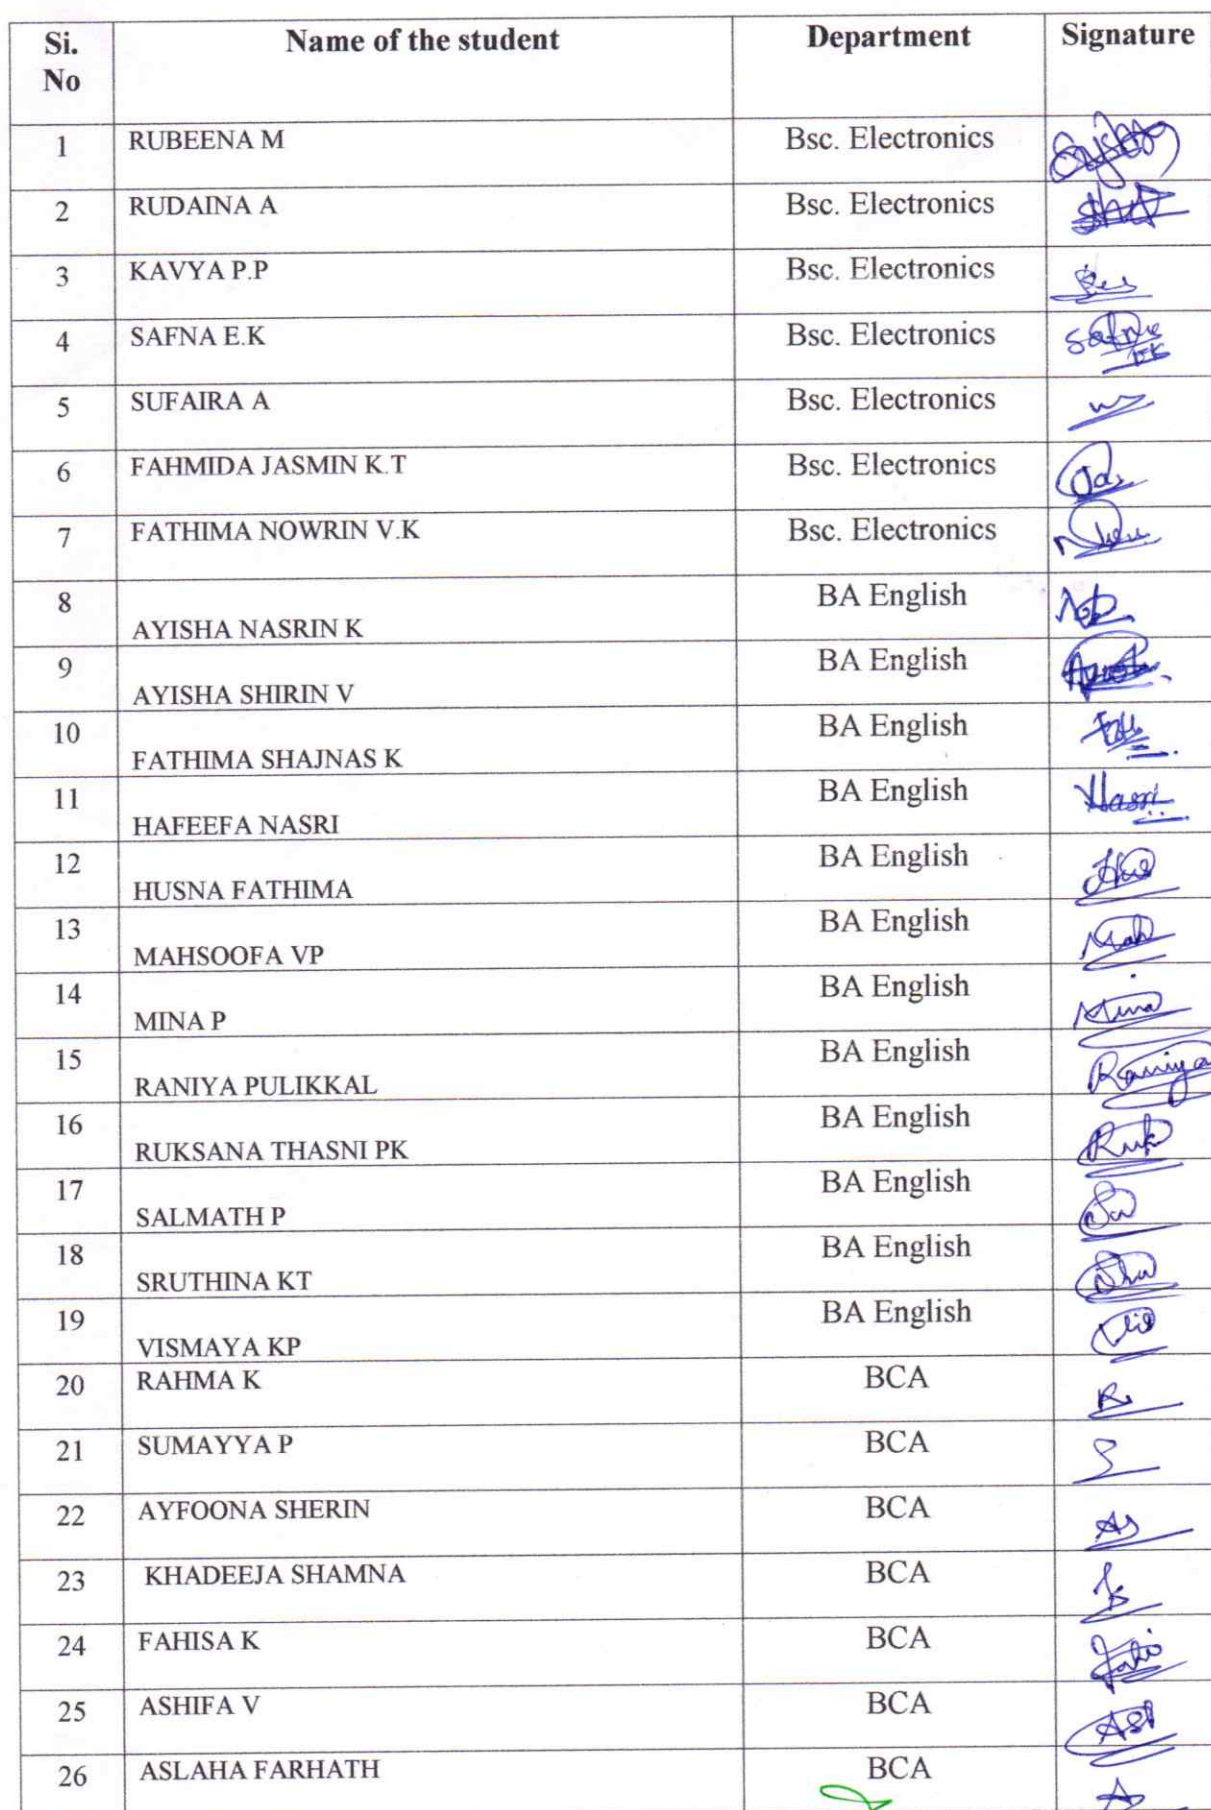 Si. No Name of the student Department Signature
1 RUBEENA M Bsc. Electronics
2 RUDAINA A Bsc. Electronics
3 KAVYA P.P Bsc. Electronics
4 SAFNA E.K Bsc. Electronics Safna EK
5 SUFAIRA A Bsc. Electronics
6 FAHMIDA JASMIN K.T Bsc. Electronics
7 FATHIMA NOWRIN V.K Bsc. Electronics
8 AYISHA NASRIN K BA English
9 AYISHA SHIRIN V BA English
10 FATHIMA SHAJNAS K BA English
11 HAFEEFA NASRI BA English Hasri
12 HUSNA FATHIMA BA English
13 MAHSOOFA VP BA English
14 MINA P BA English Mina
15 RANIYA PULIKKAL BA English Raniya
16 RUKSANA THASNI PK BA English Ruk
17 SALMATH P BA English
18 SRUTHINA KT BA English
19 VISMAYA KP BA English
20 RAHMA K BCA
21 SUMAYYA P BCA
22 AYFOONA SHERIN BCA
23 KHADEEJA SHAMNA BCA
24 FAHISA K BCA
25 ASHIFA V BCA
26 ASLAHA FARHATH BCA